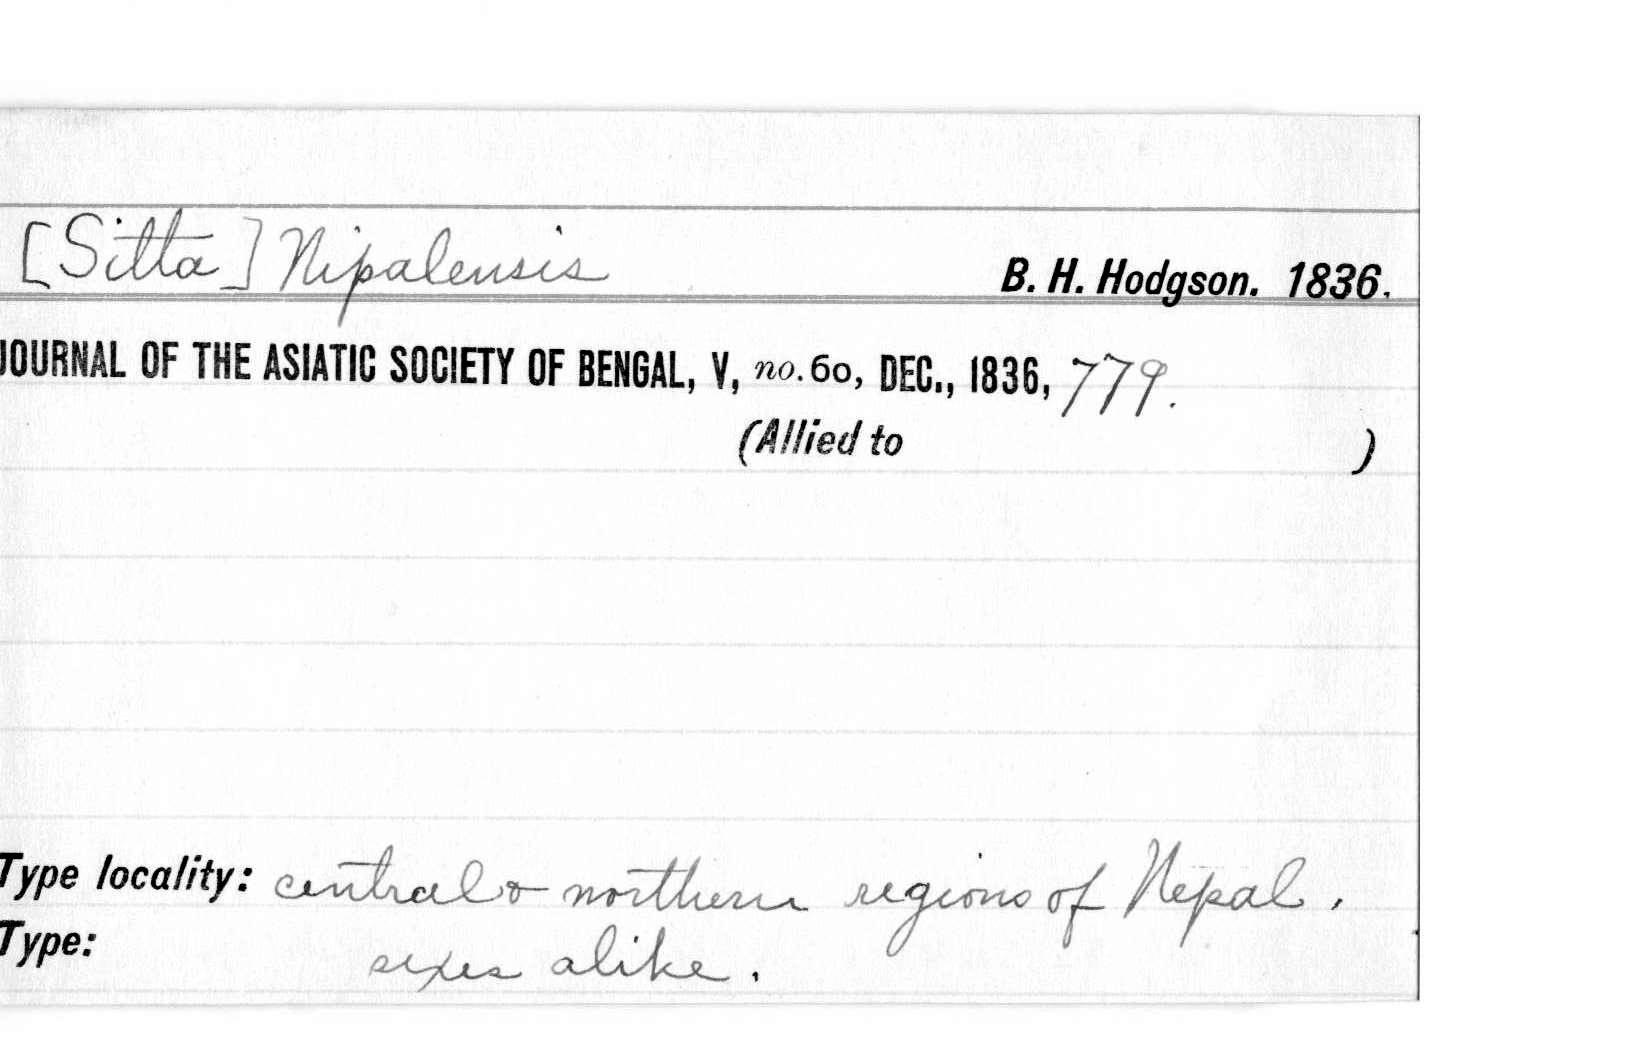 [Sitta] Nipalensis B. H. Hodgson. 1836.
JOURNAL OF THE ASIATIC SOCIETY OF BENGAL, V, no. 60, DEC., 1836, 779.
(Allied to )
Type locality: central & northern regions of Nepal.
Type: sexes alike.